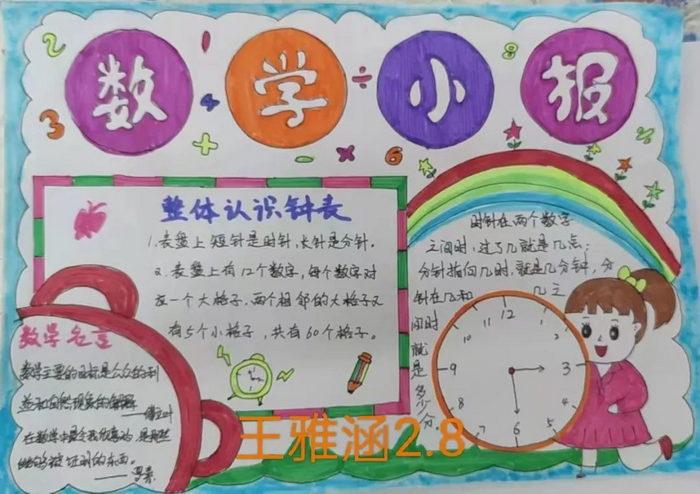 数学小报
整体认识钟表
1.表盘上短针是时针,长针是分针。
2.表盘上有12个数字,每个数字对
应一个大格子,两个相邻的大格子又
有5个小格子,共有60个格子。
时针在两个数字
之间时,过了几就是几点;
分针指向几时,就是几分钟,分
针在几和 几之
间时
就
是
多
少
分
12
3
9
数学名言
数学主要的目标是公众的利
益和自然现象的解释
傅立叶
在数学中最令我欣喜的,是那些
能够被证明的东西。
——罗素
王雅涵2.8